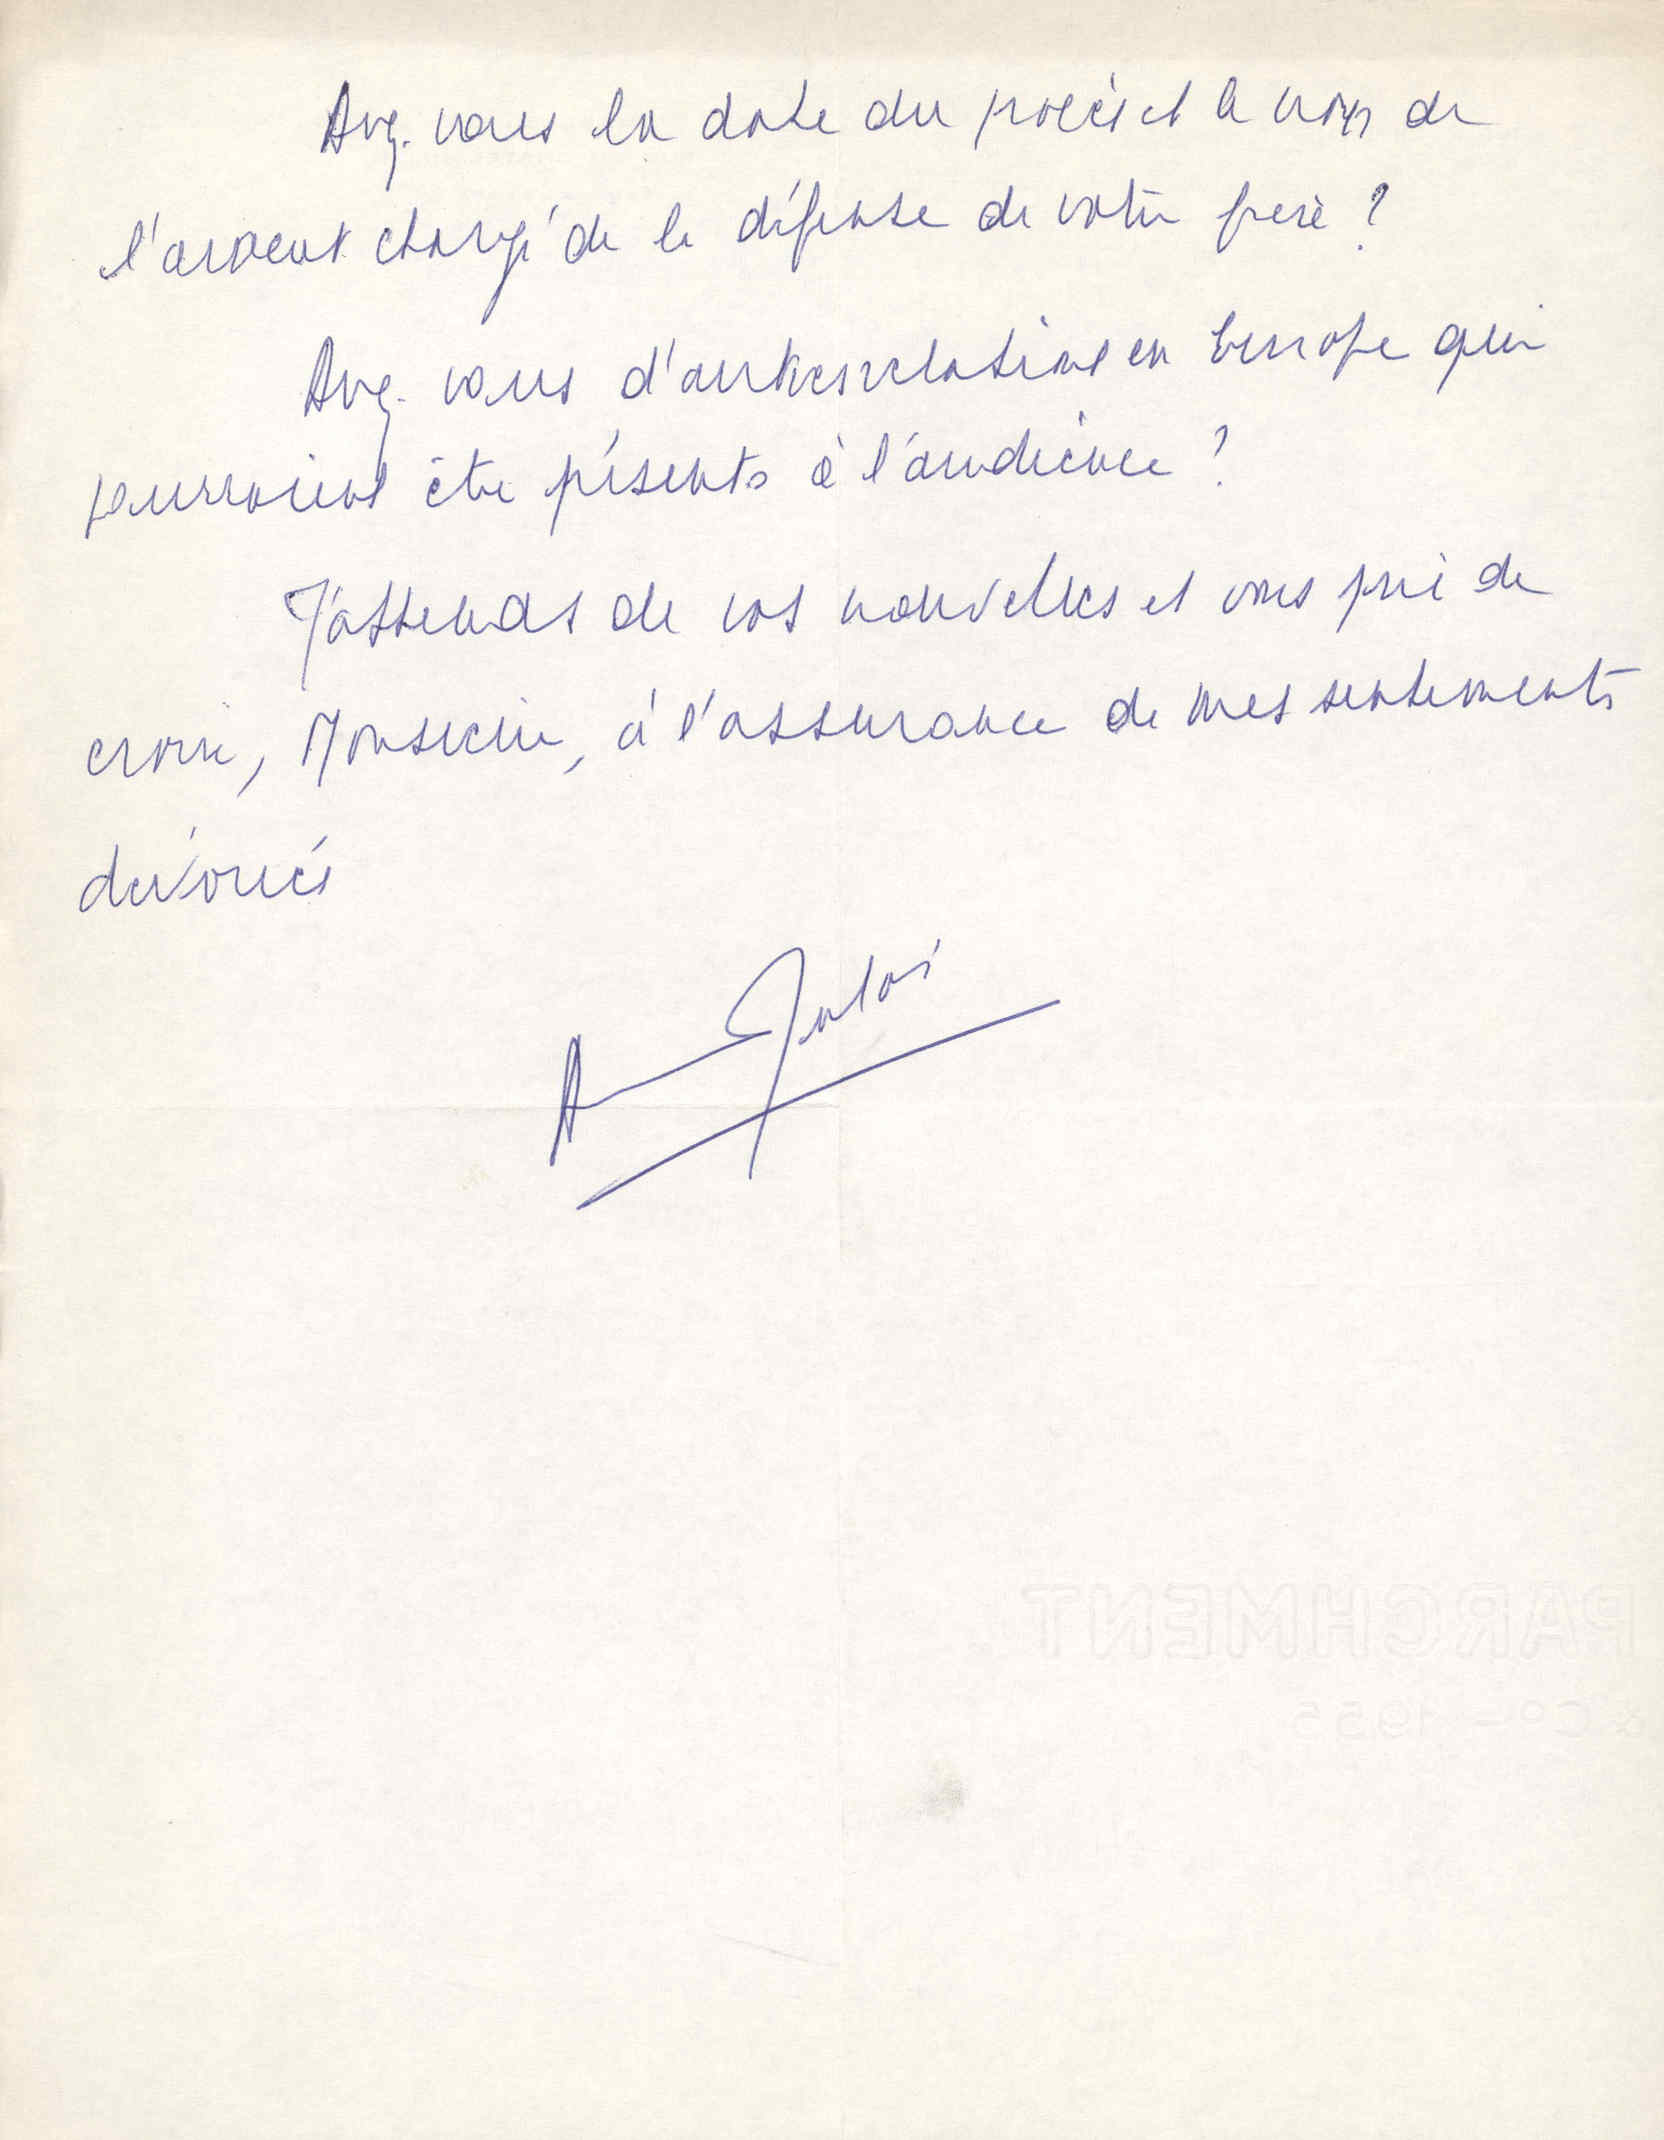 Avez-vous la date du procès et le nom de
l'avocat chargé de la défense de votre frère ?
Avez-vous d'autres relations en Europe qui
pourraient être présents à l'audience ?
J'attends de vos nouvelles et vous prie de
croire, Monsieur, à l'assurance de mes sentiments
dévoués
PARCHMENT
& Cº - 1955